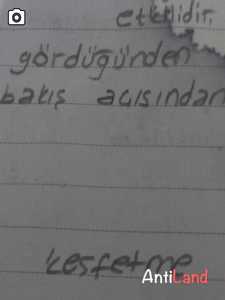 etkilidir.
gördüğünden
bakış açısından
keşfetme
AntiLand